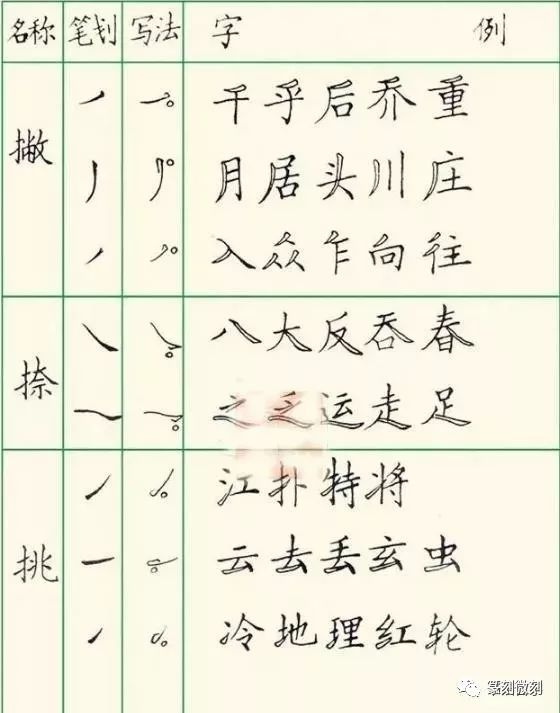 名称 笔划 写法 字 例
撇
千 乎 后 乔 重
月 居 头 川 庄
入 众 乍 向 往
捺
八 大 反 吞 春
之 乏 运 走 足
挑
江 扑 特 将
云 去 丢 玄 虫
冷 地 理 红 轮
篆刻微刻